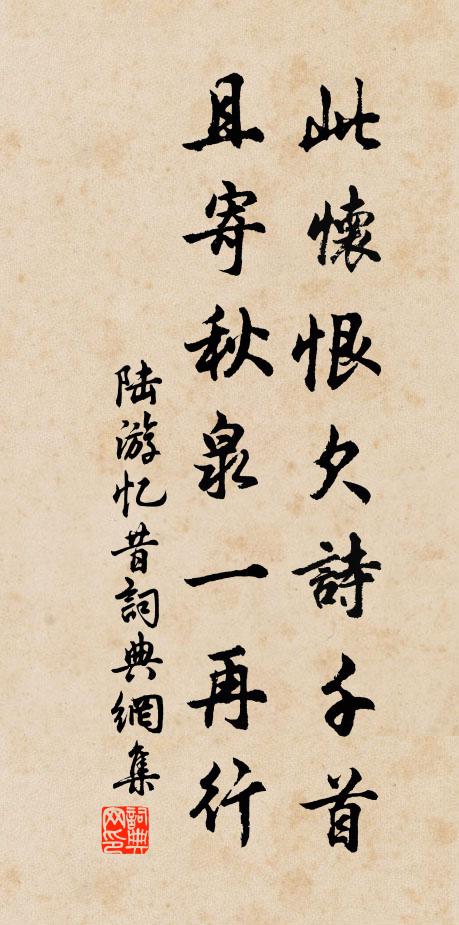 此懷恨欠詩千首
且寄秋泉一再行
陆游忆昔詞典網集
詞典网印